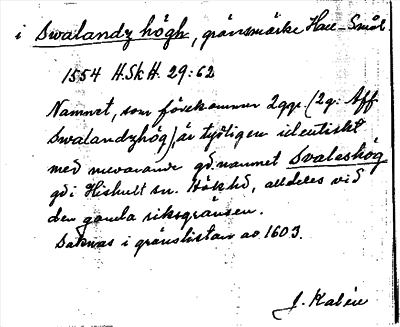 i Swalandz högh, gränsmärke Hall-Smål
1554 H.Sk H. 29:62
Namnet, som förekommer 2 ggr (2g: Aff
Swalandzhög), är tydligen identiskt
med nuvarande gd.namnet Svaleshög
gd i Hishult sn. Hökhd, alldeles vid
den gamla riksgränsen.
Saknas i gränslistan av 1603.
J. Kalén